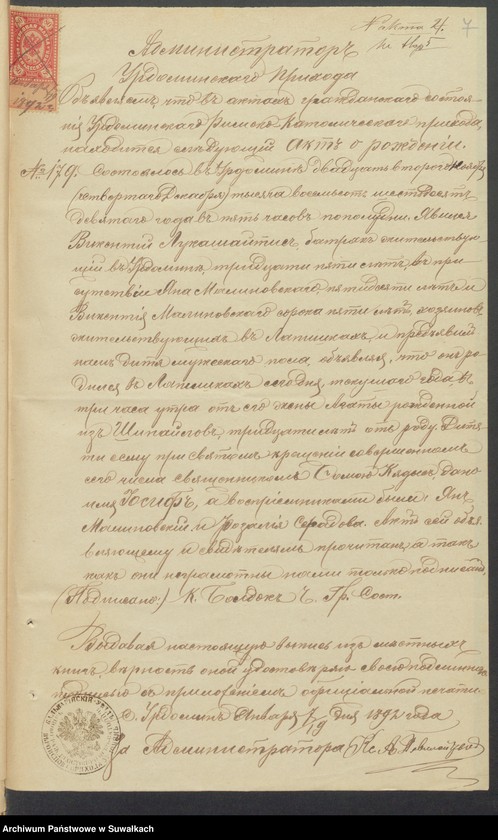 Администраторъ
Урдоминскаго Прихода
Объявляемъ что въ актахъ гражданскаго состоя-
нія Урдоминскаго Римско Католическаго прихода,
находится слѣдующій Актъ о рожденіи.
№ 179. Состоялось въ Урдоминѣ двадцать втораго Ноября
(четвертаго Декабря) тысяча восемьсотъ шестьдесятъ
девятаго года въ пять часовъ пополудни. Явился
Викентій Лукашайтисъ, батракъ жительствую-
щій въ Урдоминѣ, тридцати пяти лѣтъ, въ при-
сутствіи Яна Малиновскаго, пятидесяти лѣтъ и
Викентія Малиновскаго сорока пяти лѣтъ, хозяиновъ
жительствующихъ въ и предъявилъ
намъ дитя мужескаго пола, объявляя, что оно ро-
дилося въ сего дня, текущаго года въ
три часа утра отъ его жены Агаты рожденной
изъ тридцати лѣтъ отъ роду. Дитя-
ти сему при святомъ крещеніи совершенномъ
сего числа священникомъ дано
имя Іосифъ, а воспріемниками были: Янъ
Малиновскій и Розалія Актъ сей объя-
вляющему и свидѣтелямъ прочитанъ, а такъ
какъ они неграмотны нами только подписанъ.
(Подписано:) К. Болдокъ Ч. Гр. Сост.
Выдавая настоящую выпись изъ мѣстныхъ
книгъ, вѣрность оной удостовѣряю своею
подписью съ приложеніемъ оффиціальной печати.
Января 7/19 дня 1892 года
За Администратора Кс. А.
Archiwum Państwowe w Suwałkach